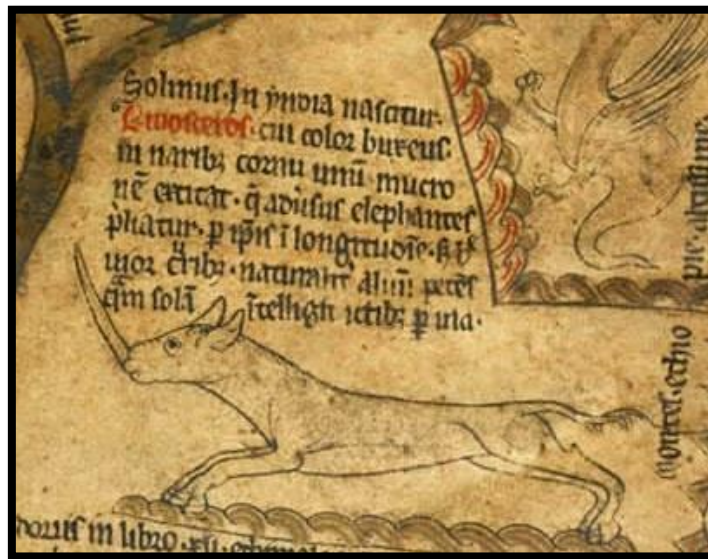 Solinus. In yndia nascitur.
Rinosceros. cui color buxeus.
in naribꝫ cornu unū mucro
nē excitat. q̄ adūsus elephantes
p̄liatur. ꝑ ip̄is ī longitudīe.
uior crībꝫ. naturalit̄ aluū petēs
q̄m solā ītelligit ictibꝫ ꝑuia.
montes.
in libro .xii.